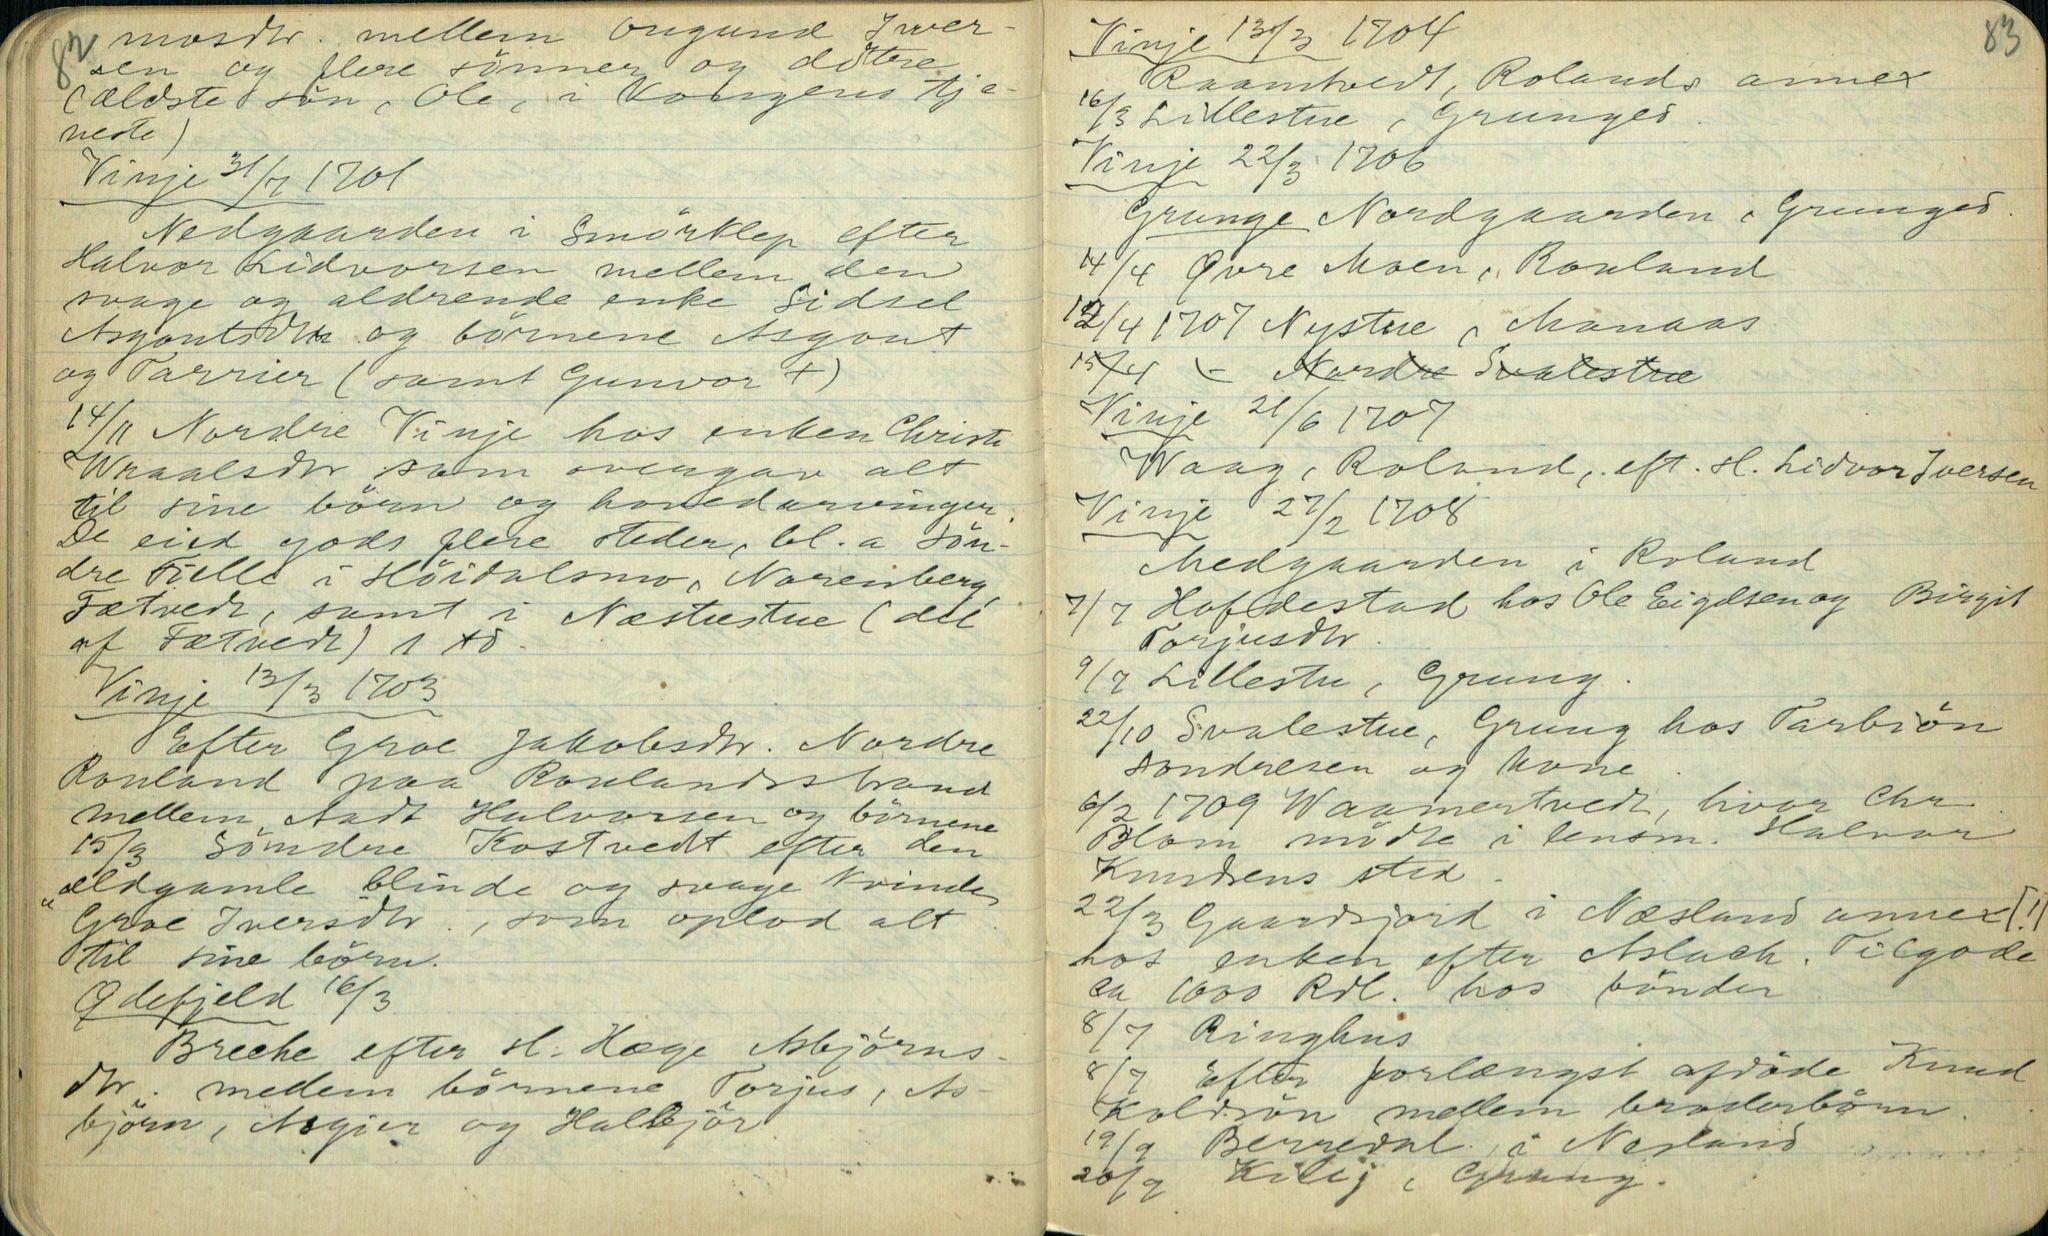 82
mosdtr. mellem Ougund Iver-
sen og flere sönner og döttre
(ældste sön, Ole, i Kongens tje-
neste)
Vinje 31/7 1701
Nedgaarden i Smörklep efter
Halvor Lidvorsen mellem den
svage og aldrende enke Sidsel
Asgoutsdtr og börnene Asgout
og Tarrier (samt Gunvor +)
14/11 Nordre Vinje hos enken Christi
Wraalsdtr som overgav alt
til sine börn og hovedarvinger.
De eied gods flere steder, bl. a Sön-
dre Fielle i Höidalsmo, Norenberg,
Fætvedt, samt i Næstestue (del
af Fætvedt)
Vinje 13/3 1703
Efter Groe Jakobsdtr. Nordre
Rouland paa Roulandsstrand
mellem Aadt Halvorsen og börnene
15/3 Söndre Kostvedt efter den
"ældgamle blinde og svage kvinde"
Groe Iversdtr., som oplod alt
til sine börn.
Ødefjeld 16/3
Breche efter sl. Hæge Asbjörns-
dtr. mellem börnene Torjus, As-
björn, Asgier og Halbjör
83
Vinje 13/3 1704
Raamtvedt, Rolands annex
16/3 Lillestue, Grunged.
Vinje 22/3 1706
Grunge Nordgaarden, Grunged.
14/4 Øvre Moen, Rouland
12/4 1707 Nystue, Manaas
15/4 - Nordre Svalestue
Vinje 21/6 1707
Waag, Roland, eft. sl. Lidvor Iversen
Vinje 27/2 1708
Medgaarden i Roland
7/7 Hofdestad hos Ole Eigelsen og Birgit
Torjusdtr.
9/7 Lillestu, Grung.
22/10 Svalestue, Grung hos Tarbiön
Sondresen og kone.
6/2 1709 Waamertvedt, hvor Chr.
Blom mödte i lensm. Halvor
Knudsens sted.
22/3 Gaardsjord i Næsland annex [!]
hos enken efter Aslach. Tilgode
ca 1000 Rdl. hos bönder
8/7 Ringhus
8/7 Efter forlængst afdöde Knud
Koldsön mellem broderbörn.
19/9 Berredal, i Nesland
20/9 Kilij, Grung.